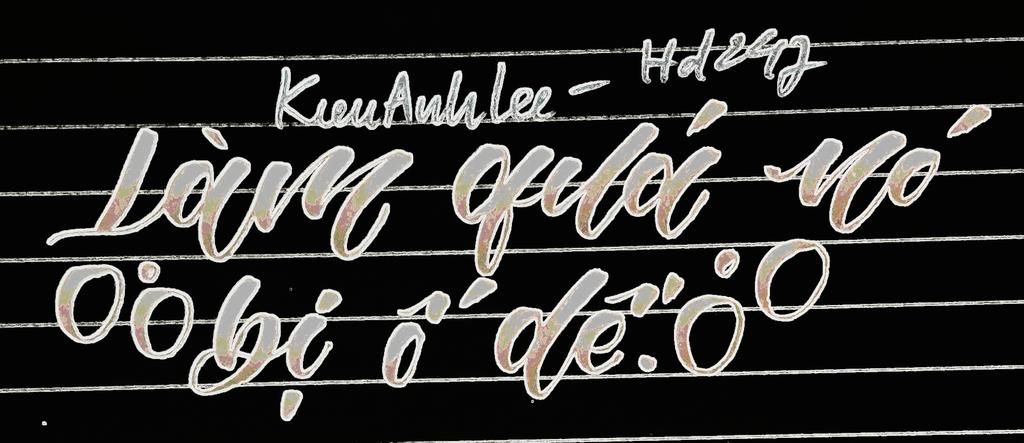 KieuAnhLee - Hd24g
Làm quá nó
bị ố dề.